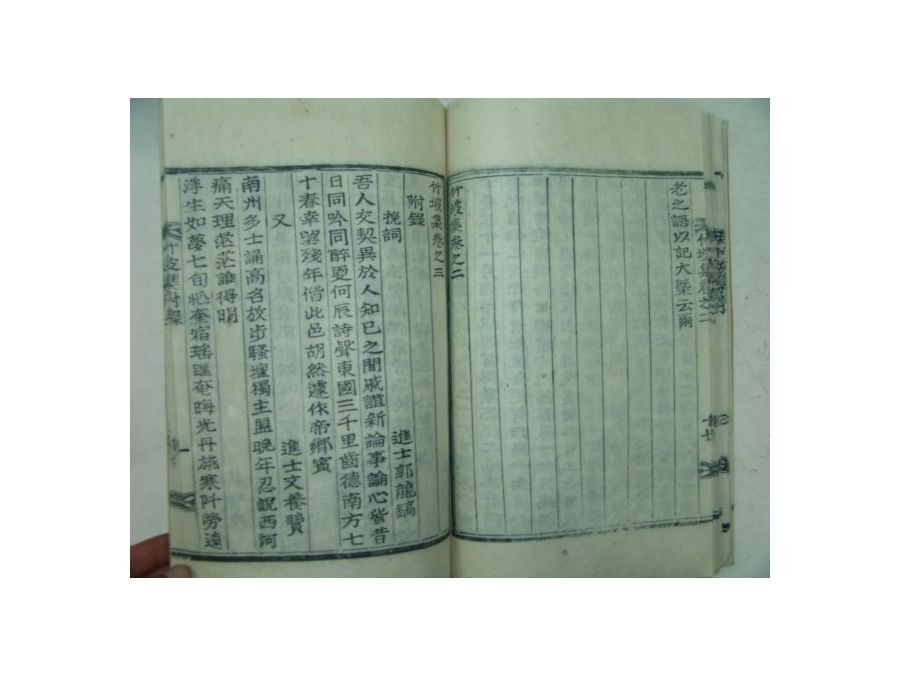 老之語以記大槩云爾
竹坡集卷之二
竹坡集卷之三
附錄
挽詞
進士郭龍鎬
吾人交契異於人知已之間戚誼新論事論心皆昔
日同吟同醉夏何辰詩聲東國三千里齒德南方七
十春幸望殘年偕此邑胡然遽作帝鄉賓
又
進士文養贒
南州多士誦高名放步騷壇獨主盟晩年忍說西河
痛天理茫茫誰得明
浮生如夢七旬 奎宿瑤 奄晦光丹旐寒阡勞遠
竹坡集附錄
一